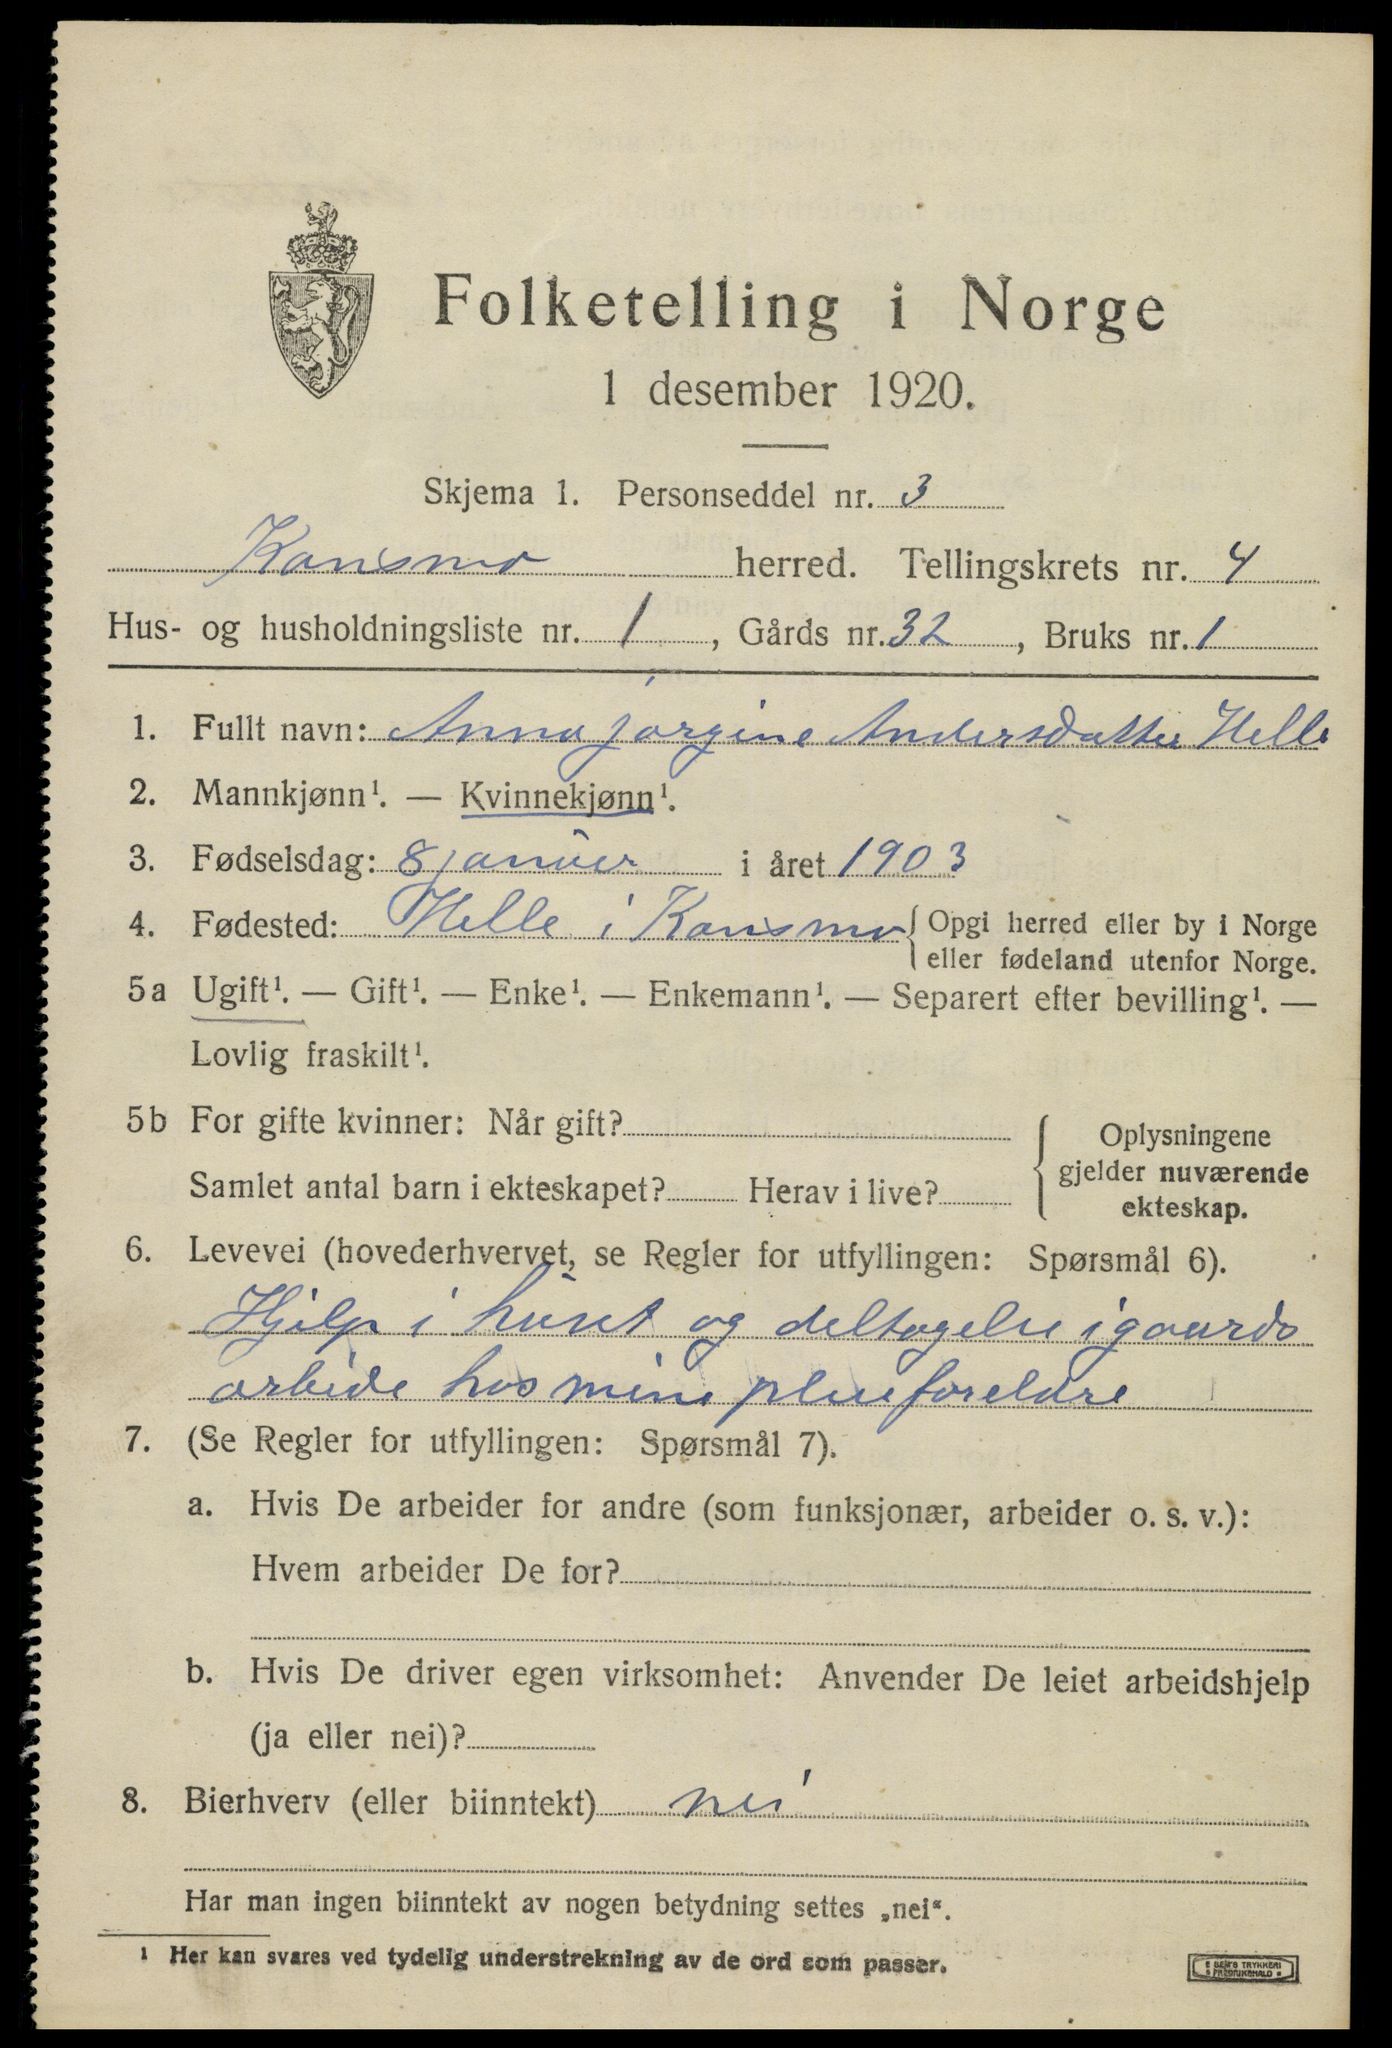 Folketelling i Norge
1 desember 1920.
Skjema 1. Personseddel nr. 3
Konsmo herred. Tellingskrets nr. 4
Hus- og husholdningsliste nr. 1, Gårds nr. 32, Bruks nr. 1
1. Fullt navn: Anna jorgine Andersdatter Helle
2. Mannkjønn¹. — Kvinnekjønn¹.
3. Fødselsdag: 8 januer i året 1903
4. Fødested: Helle i Konsmo { Opgi herred eller by i Norge
eller fødeland utenfor Norge.
5a Ugift¹. — Gift¹. — Enke¹. — Enkemann¹. — Separert efter bevilling¹. —
Lovlig fraskilt¹.
5b For gifte kvinner: Når gift?
Samlet antal barn i ekteskapet? Herav i live?
{ Oplysningene
gjelder nuværende
ekteskap.
6. Levevei (hovederhvervet, se Regler for utfyllingen: Spørsmål 6).
Hjelp i huset og deltagelse i gaards
arbeide hos mine pleieforeldre
7. (Se Regler for utfyllingen: Spørsmål 7).
a. Hvis De arbeider for andre (som funksjonær, arbeider o. s. v.):
Hvem arbeider De for?
b. Hvis De driver egen virksomhet: Anvender De leiet arbeidshjelp
(ja eller nei)?
8. Bierhverv (eller biinntekt) nei
Har man ingen biinntekt av nogen betydning settes „nei“.
¹ Her kan svares ved tydelig understrekning av de ord som passer.
E SEM'S TRYKKERI
FREDRIKSHALD